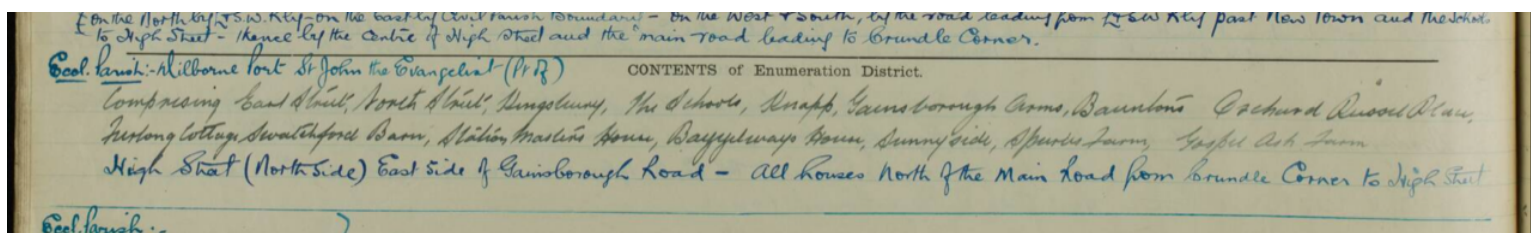 on the North by L & S.W. Rly - on the East by Civil Parish Boundary - on the West & South, by the road leading from L & SW Rly past New Town and the Schools
to High Street - thence by the centre of High Street and the main road leading to Crundle Corner.
Eccl. Parish:- Milborne Port St John the Evangelist (Pt of)
CONTENTS of Enumeration District.
Comprising East Street, North Street, Kingsbury, The Schools, Knapp, Gainsborough Arms, Bauntons Orchard Russel Place,
Furlong Cottage Swatchford Barn, Station Masters House, House, Sunnyside, Spurles Farm, Gospel Ash Farm
High Street (North Side) East Side of Gainsborough Road - All houses North of the Main Road from Crundle Corner to High Street
Eccl. Parish:-